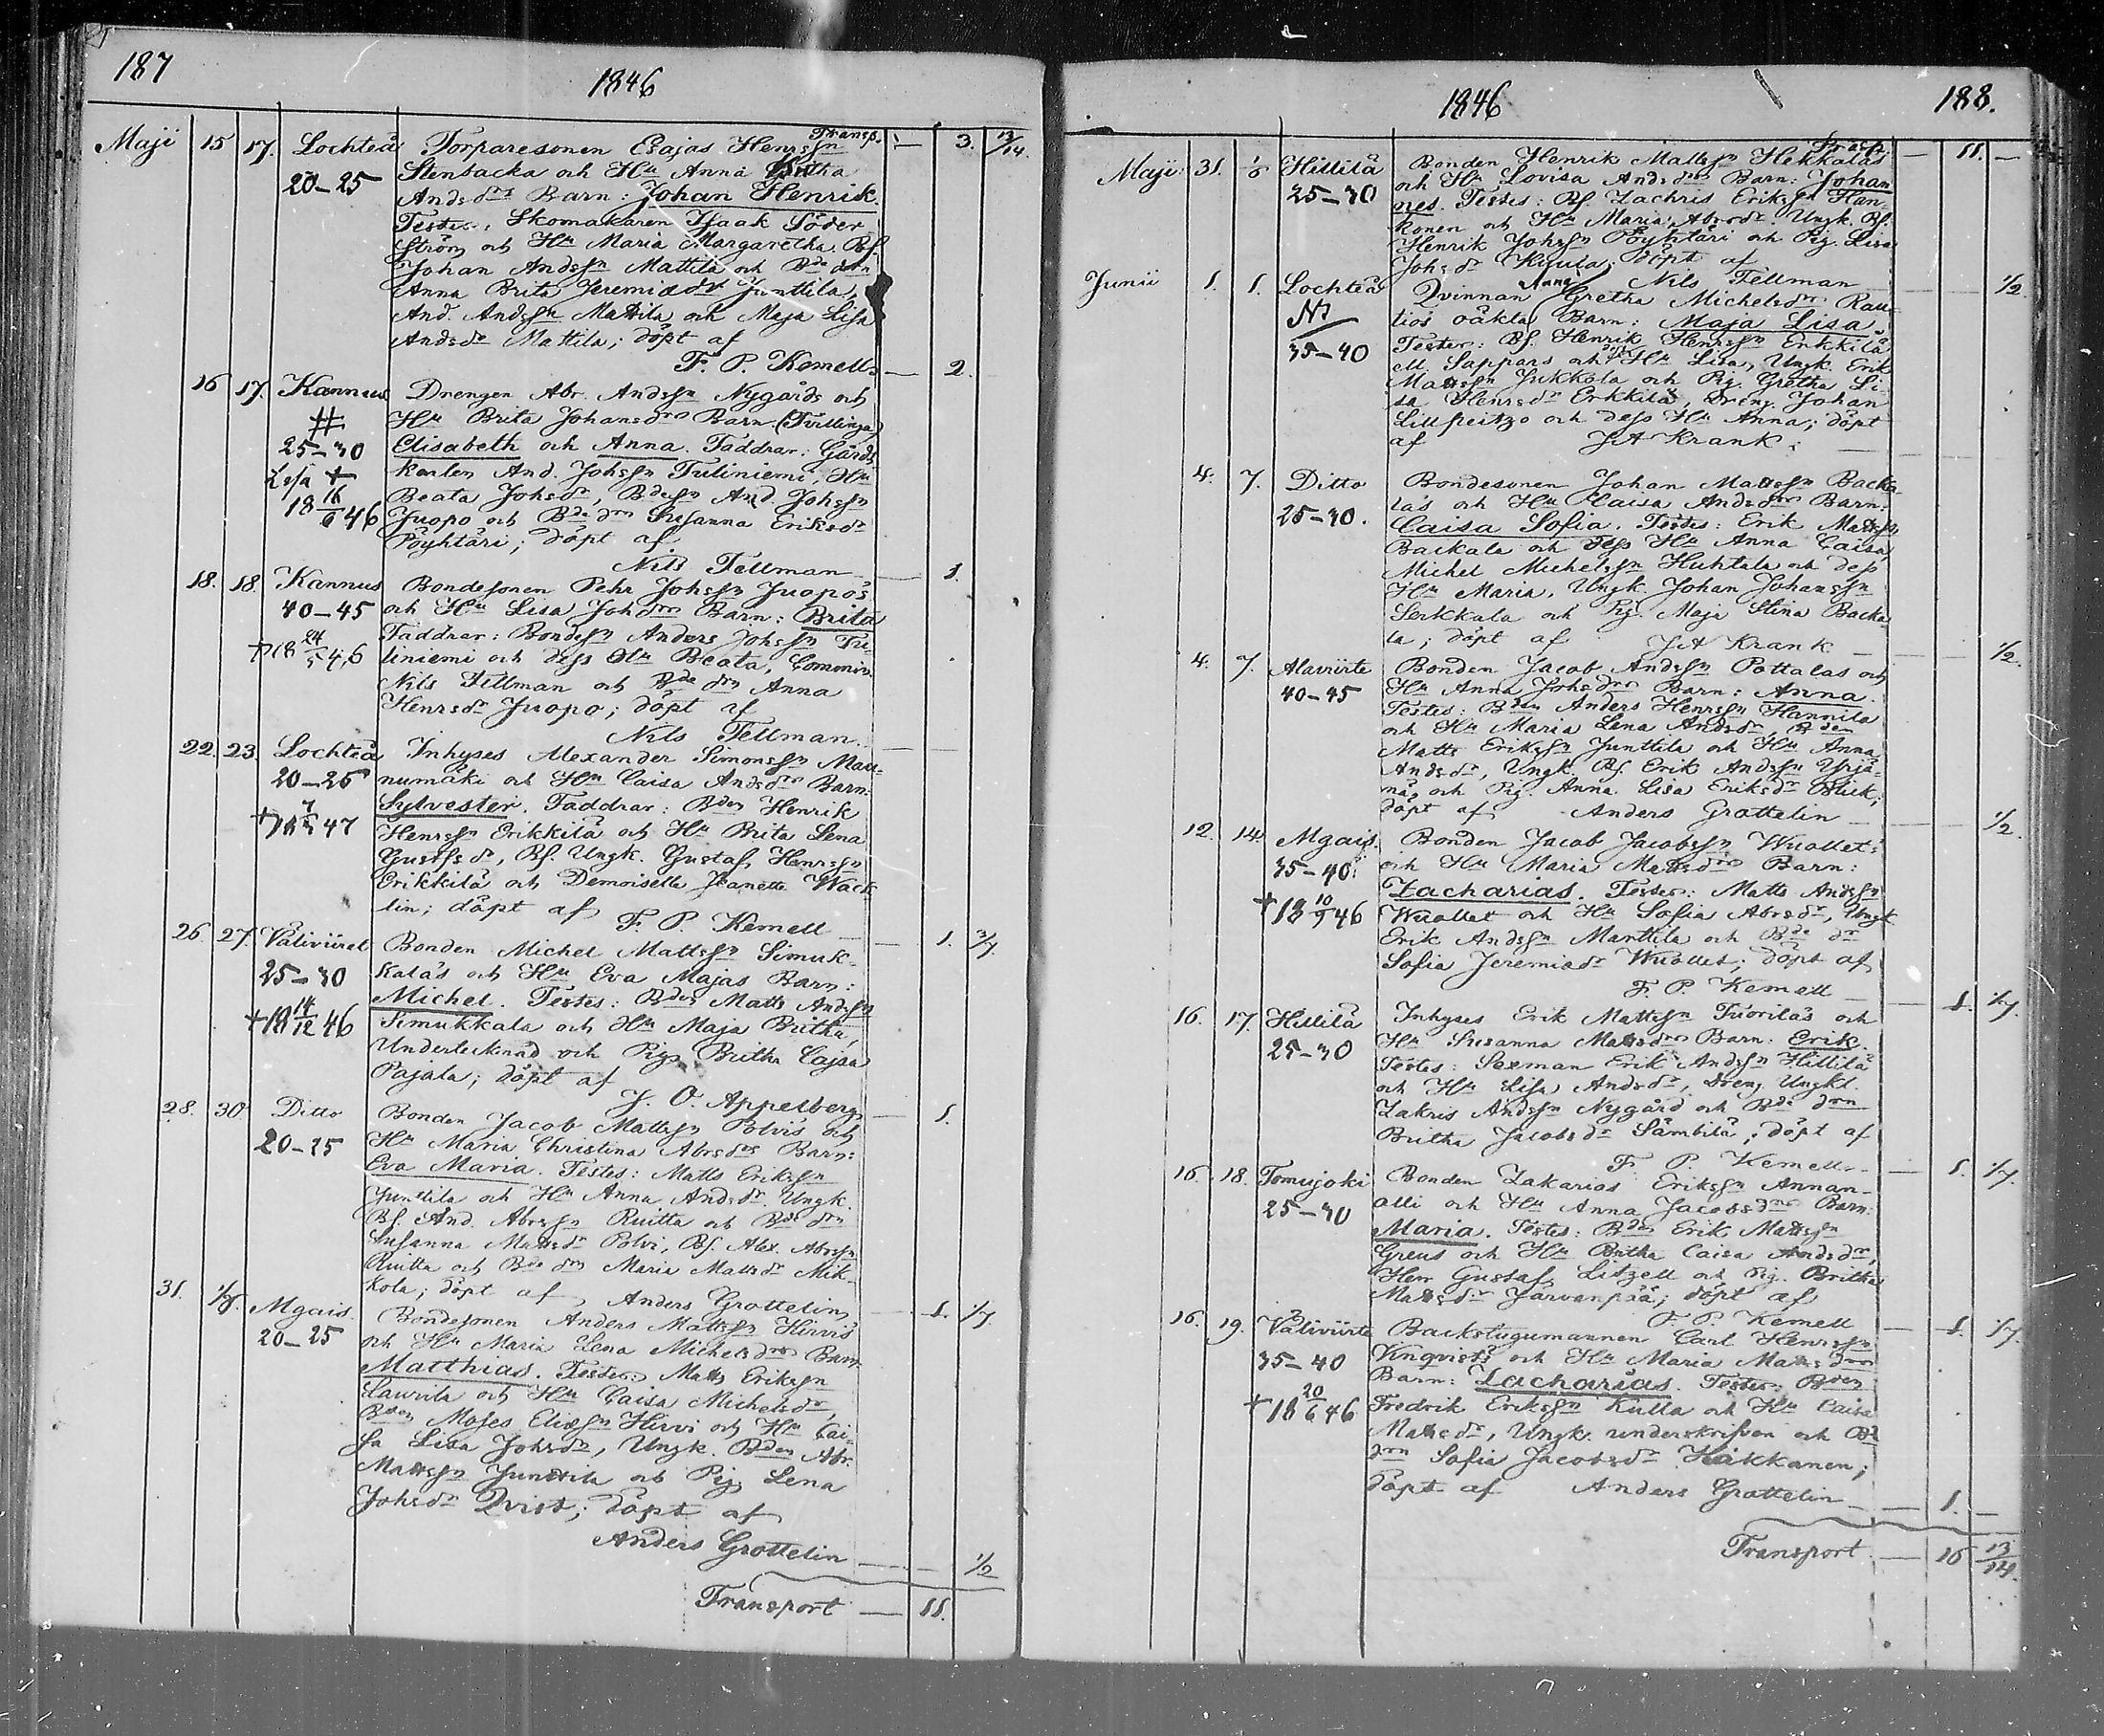 187
1846
Transp. — 3. 13/14.
Maji 15 17. Lochteå Torparesonen Esajas Henrssn
20–25 Stenbacka och Hu Anna Britha
Andsdrs Barn: Johan Henrik.
Testes: Skomakaren Isaak Söder
ström och Hu Maria Margaretha. Bs.
Johan Andssn Mattila och Bde drn
Anna Brita Jeremiædr Junttila,
And. Andssn Mattila och Maja Lisa
Andsdr Mattila; döpt af
F. P. Kemell — 2.
16 17. Kannus Drengen Abr. Andssn Nygårds och
# Hu Brita Johansdrs Barn (Tvillingar)
25–30 Elisabeth och Anna. Faddrar: Gårds
Lisa + karlen And. Johssn Tuliniemi, Hu
18 16/6 46 Beata Johsdr, Bdesn And Johssn
Juopo och Bde drn Susanna Eriksdr
Pöyhtäri; döpt af
Nils Fellman — 1.
18. 18. Kannus Bondesonen Pehr Johssn Juopos
40–45 och Hu Lisa Johdrs Barn: Brita
Faddrar: Bondesn Anders Johssn Tu-
+ 18 24/5 46 liniemi och dess Hu Beata, Comminr.
Nils Fellman och Bde drn Anna
Henrsdr Juopo; döpt af
Nils Fellman. —
22. 23. Lochteå Inhyses Alexander Simonssn Mau-
20–25 numäki och Hu Caisa Andsdrs Barn:
Sylvester. Faddrar: Bden Henrik
+ 18 7/3 47 Henrssn Erikkilä och Hu Brita Lena
Gustfsdr, Bs. Ungk. Gustaf Henrssn
Erikkilä och Demoiselle Jeanette Wack-
lin; döpt af F. P. Kemell — 1. 3/7.
26. 27. Väliviiret Bonden Michel Mattssn Simuk-
25–30 kalas och Hu Eva Majas Barn:
Michel. Testes: Bden Matts Andssn
+ 18 14/12 46 Simukkala och Hu Maja Britha,
Undertecknad och Pig. Britha Cajsa
Pajala; döpt af
J. O. Appelberg — 1.
28. 30. Ditto Bonden Jacob Mattssn Polvis och
20–25 Hu Maria Christina Abrsdrs Barn:
Eva Maria. Testes: Matts Erikssn
Junttila och Hu Anna Andsdr. Ungk.
Bs. And. Abrssn Ruitta och Bde drn
Susanna Mattsdr Polvi, Bs. Alex. Abrssn
Ruitta och Bde drn Maria Mattsdr Mik-
kola; döpt af Anders Grottelin — 1. 1/7
31. 1/6. Mgais Bondesonen Anders Mattssn Hirvis
20–25 och Hu Maria Lena Michelsdrs Barn
Matthias. Testes: Matts Erikssn
Laurila och Hu Caisa Michelsdr,
Bden Moses Eliessn Hirvi och Hu Cai-
sa Lisa Johsdr, Ungk. Bden Abr.
Mattssn Junttila och Pig Lena
Johsdr Qvist; döpt af
Anders Grottelin — 1/2
Transport — 11.
1846
188.
Transp. — 11. —
Maji 31. 1/6 Hillilä Bonden Henrik Mattssn Hekkalas
25–30 och Hu Lovisa Andsdrs Barn: Johan
nes. Testes: Bs. Zachris Erikssn Han-
konen och Hu Maria Abrsdr Ungk. Bs.
Henrik Johssn Pöyhtäri och Pig. Lisa
Johsdr Kiuula; döpt af
Nils Fellman — 1/2
Junii 1. 1. Lochteå Qvinnan Anna Gretha Michelsdrs Rau-
tios oäkta Barn: Maja Lisa.
35–40 Testes: Bs. Henrik Henrssn Erkkilä
ell. Sappars och dess Hu Lisa, Ungk. Erik
Mattssn Jukkola och Pig. Gretha Li-
sa Henrsdr Erkkilä, Dreng. Johan
Lillpeitzo och dess Hu Anna; döpt
af J A Krank; —
4. 7. Ditto Bondesonen Johan Mattssn Backa-
25–30. las och Hu Caisa Andsdrs Barn:
Caisa Sofia. Testes: Erik Mattssn
Backala och dess Hu Anna Caisa
Michel Michelssn Huhtala och dess
Hu Maria, Ungk. Johan Johanssn
Serkkala och Pig. Maja Stina Backa-
la; döpt af J A Krank — 1/2.
4. 7. Alaviirte Bonden Jacob Andssn Pottalas och
40–45 Hu Anna Johsdrs Barn: Anna.
Testes: Bden Anders Henrssn Hannila
och Hu Maria Lena Andsdr, Bden
Matts Erikssn Junttila och Hu Anna
Andsdr, Ungk. Bs. Erik Andssn Yrjä-
nä, och Pig. Anna Lisa Eriksdr Blick;
döpt af Anders Grottelin — 1/2.
12. 14. Mgais. Bonden Jacob Jacobssn Wuollet:
35–40: och Hu Maria Mattsdrs Barn:
Zacharias. Testes: Matts Andssn
+ 18 10/9 46 Wuollet och Hu Sofia Abrsdr, Ungk
Erik Andssn Marttila och Bde dr
Sofia Jeremiædr Wuollet; döpt af
F. P. Kemell — 1. 1/7.
16. 17. Hillilä Inhyses Erik Mattssn Tuorilas och
25–30 Hu Susanna Mattsdrs Barn: Erik.
Testes: Sexman Erik Andssn Hillilä
och Hu Lisa Andsdr, Dreng Ungkl.
Zakris Andssn Nygård och Bde drn
Britha Jacobsdr Sämbilä; döpt af
F. P. Kemell — 1. 1/7.
16. 18. Tomujoki Bonden Zakarias Erikssn Annan-
25–30 alli och Hu Anna Jacobsdrs Barn:
Maria. Testes: Bden Erik Mattssn
Greus och Hu Britha Caisa Andsdr,
Herr Gustaf Litzell och Pig. Britha
Mattsdr Jarvenpää; döpt af
F. P. Kemell — 1. 1/7.
16. 19. Väliviirte Backstugumannen Carl Henrssn
35–40 Vinqvists och Hu Maria Mattsdrs
Barn: Zacharias. Testes: Bden
+ 18 20/6 46 Fredrik Erikssn Kulla och Hu Caisa
Mattsdr, Ungk. underskrifven och Bde
drn Sofia Jacobsdr Häkkänen;
döpt af Anders Grottelin — 1. —
Transport — 16 13/14.